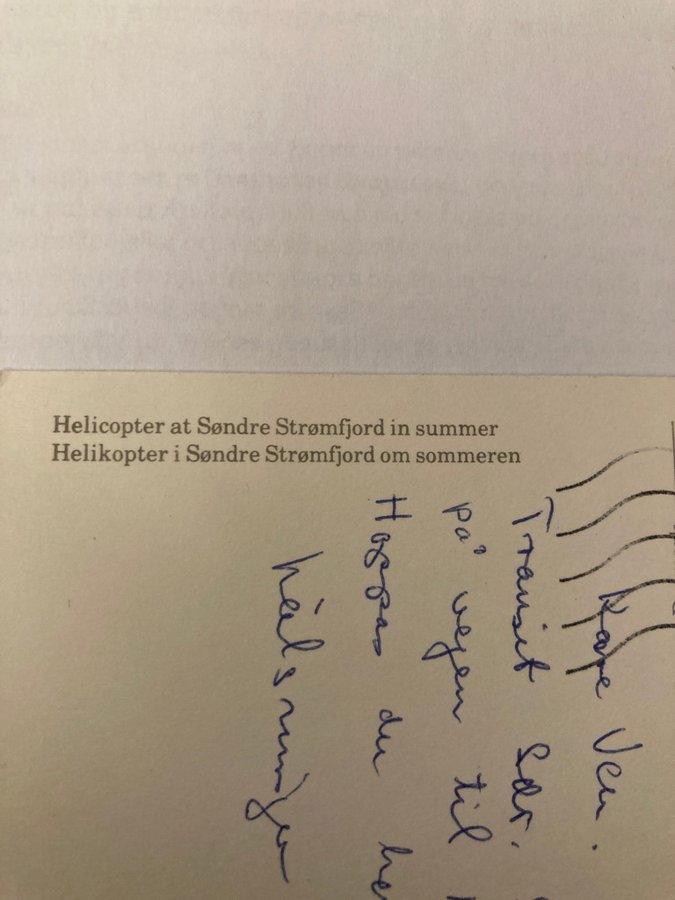 Helicopter at Søndre Strømfjord in summer
Helikopter i Søndre Strømfjord om sommeren
Kære Ven.
Transit Sdr.
på vejen til
Hoppas du